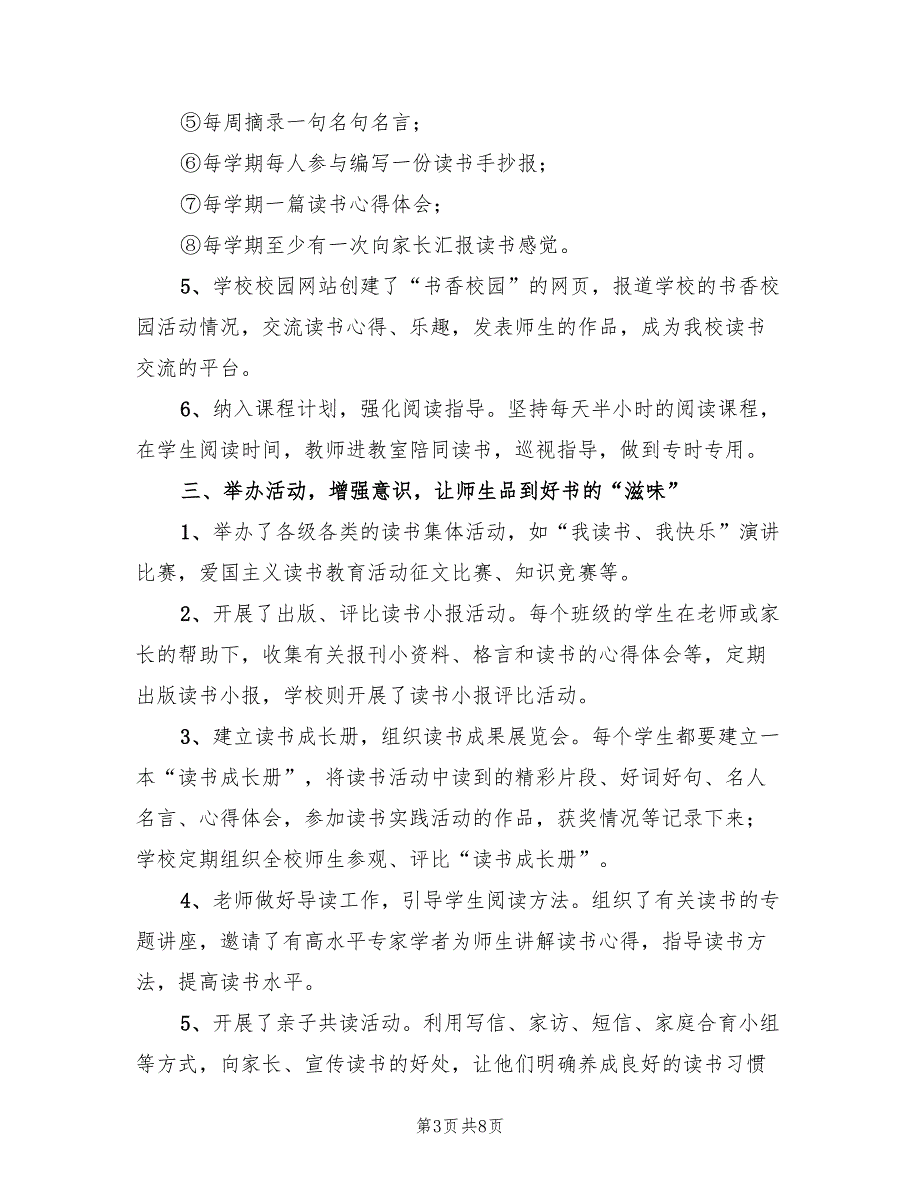 ⑤每周摘录一句名句名言；
⑥每学期每人参与编写一份读书手抄报；
⑦每学期一篇读书心得体会；
⑧每学期至少有一次向家长汇报读书感觉。
5、学校校园网站创建了“书香校园”的网页，报道学校的书香校
园活动情况，交流读书心得、乐趣，发表师生的作品，成为我校读书
交流的平台。
6、纳入课程计划，强化阅读指导。坚持每天半小时的阅读课程，
在学生阅读时间，教师进教室陪同读书，巡视指导，做到专时专用。
三、举办活动，增强意识，让师生品到好书的“滋味”
1、举办了各级各类的读书集体活动，如“我读书、我快乐”演讲
比赛，爱国主义读书教育活动征文比赛、知识竞赛等。
2、开展了出版、评比读书小报活动。每个班级的学生在老师或家
长的帮助下，收集有关报刊小资料、格言和读书的心得体会等，定期
出版读书小报，学校则开展了读书小报评比活动。
3、建立读书成长册，组织读书成果展览会。每个学生都要建立一
本“读书成长册”，将读书活动中读到的精彩片段、好词好句、名人
名言、心得体会，参加读书实践活动的作品，获奖情况等记录下来；
学校定期组织全校师生参观、评比“读书成长册”。
4、老师做好导读工作，引导学生阅读方法。组织了有关读书的专
题讲座，邀请了有高水平专家学者为师生讲解读书心得，指导读书方
法，提高读书水平。
5、开展了亲子共读活动。利用写信、家访、短信、家庭合育小组
等方式，向家长、宣传读书的好处，让他们明确养成良好的读书习惯
第3页 共8页